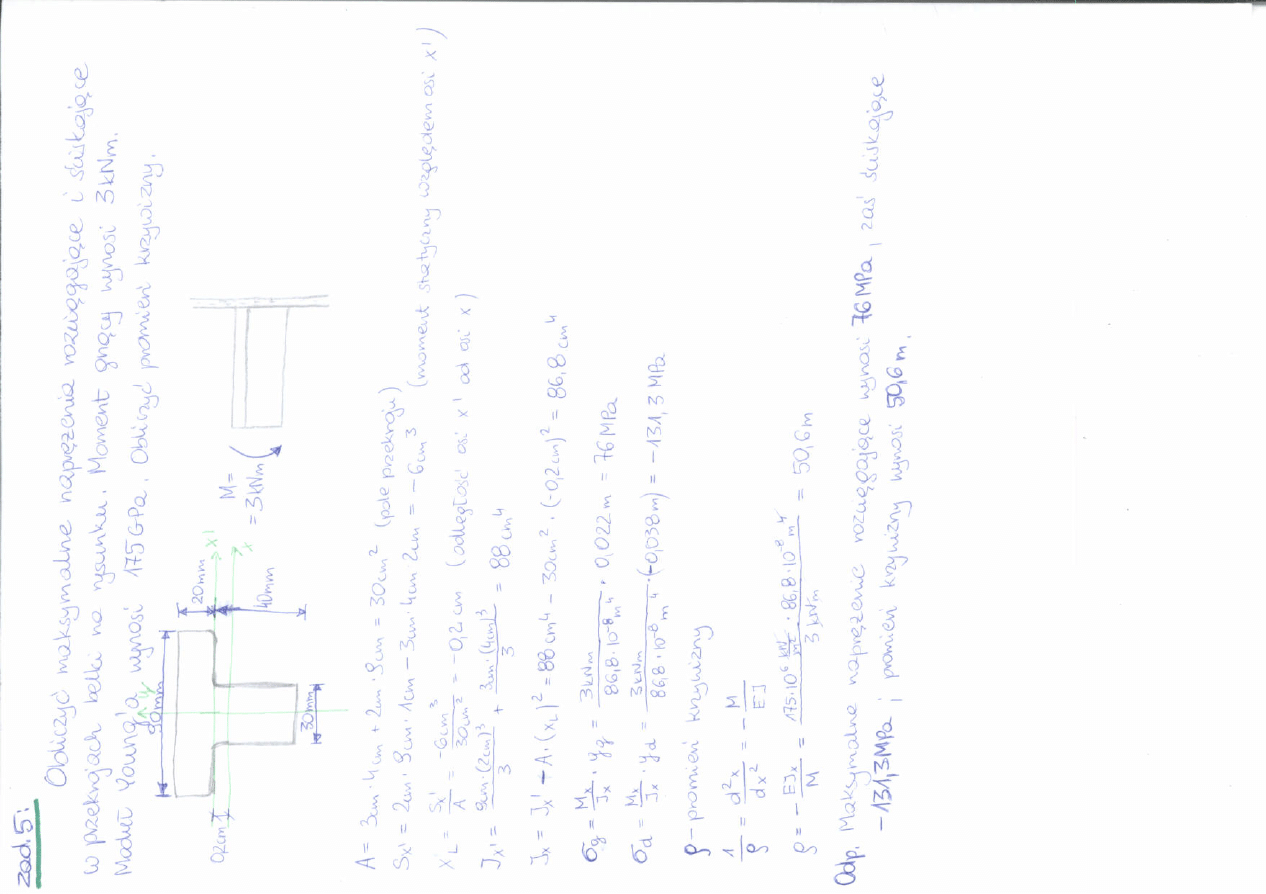 zad. 5:
Obliczyć maksymalne naprężenia rozciągające i ściskające
w przekrojach belki na rysunku. Moment gnący wynosi 3 kNm.
Moduł Young'a wynosi 175 GPa. Obliczyć promień krzywizny.
90mm
y
20mm
x'
x
40mm
30mm
0,2cm
M=
= 3kNm
A = 3cm · 4cm + 2cm · 9cm = 30cm² (pole przekroju)
Sx' = 2cm · 9cm · 1cm − 3cm · 4cm · 2cm = −6cm³ (moment statyczny względem osi x')
x'L = Sx'/A = −6cm³/30cm² = −0,2 cm (odległość osi x' od osi x)
Jx' = 9cm·(2cm)³/3 + 3cm·(4cm)³/3 = 88 cm⁴
Jx = Jx' − A·(xL)² = 88cm⁴ − 30cm² · (−0,2cm)² = 86,8 cm⁴
σg = Mx/Jx · yg = 3kNm/86,8·10⁻⁸m⁴ · 0,022m = 76MPa
σd = Mx/Jx · yd = 3kNm/86,8·10⁻⁸m⁴ · (−0,038m) = −131,3 MPa
ρ – promień krzywizny
1/ρ = d²x/dx² = − M/EJ
ρ = − EJx/M = 175·10⁶ kN/m² · 86,8·10⁻⁸m⁴/3kNm = 50,6m
Odp. Maksymalne naprężenie rozciągające wynosi 76MPa, zaś ściskające
−131,3MPa; promień krzywizny wynosi 50,6m.